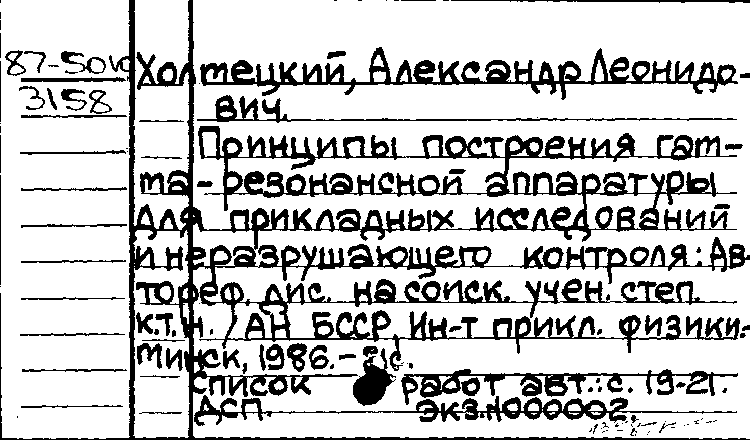 87-5010
3158
Холтецкий, Александр Леонидо-
вич.
Принципы построения гам-
ма-резонансной аппаратуры
для прикладных исследований
и неразрушающего контроля: Ав-
тореф. дис. на соиск. учен. степ.
к.т.н. / АН БССР, Ин-т прикл. физики.-
Минск, 1986.- 21с.
Список работ авт.: с. 19-21.
ДСП. Экз.N000002.